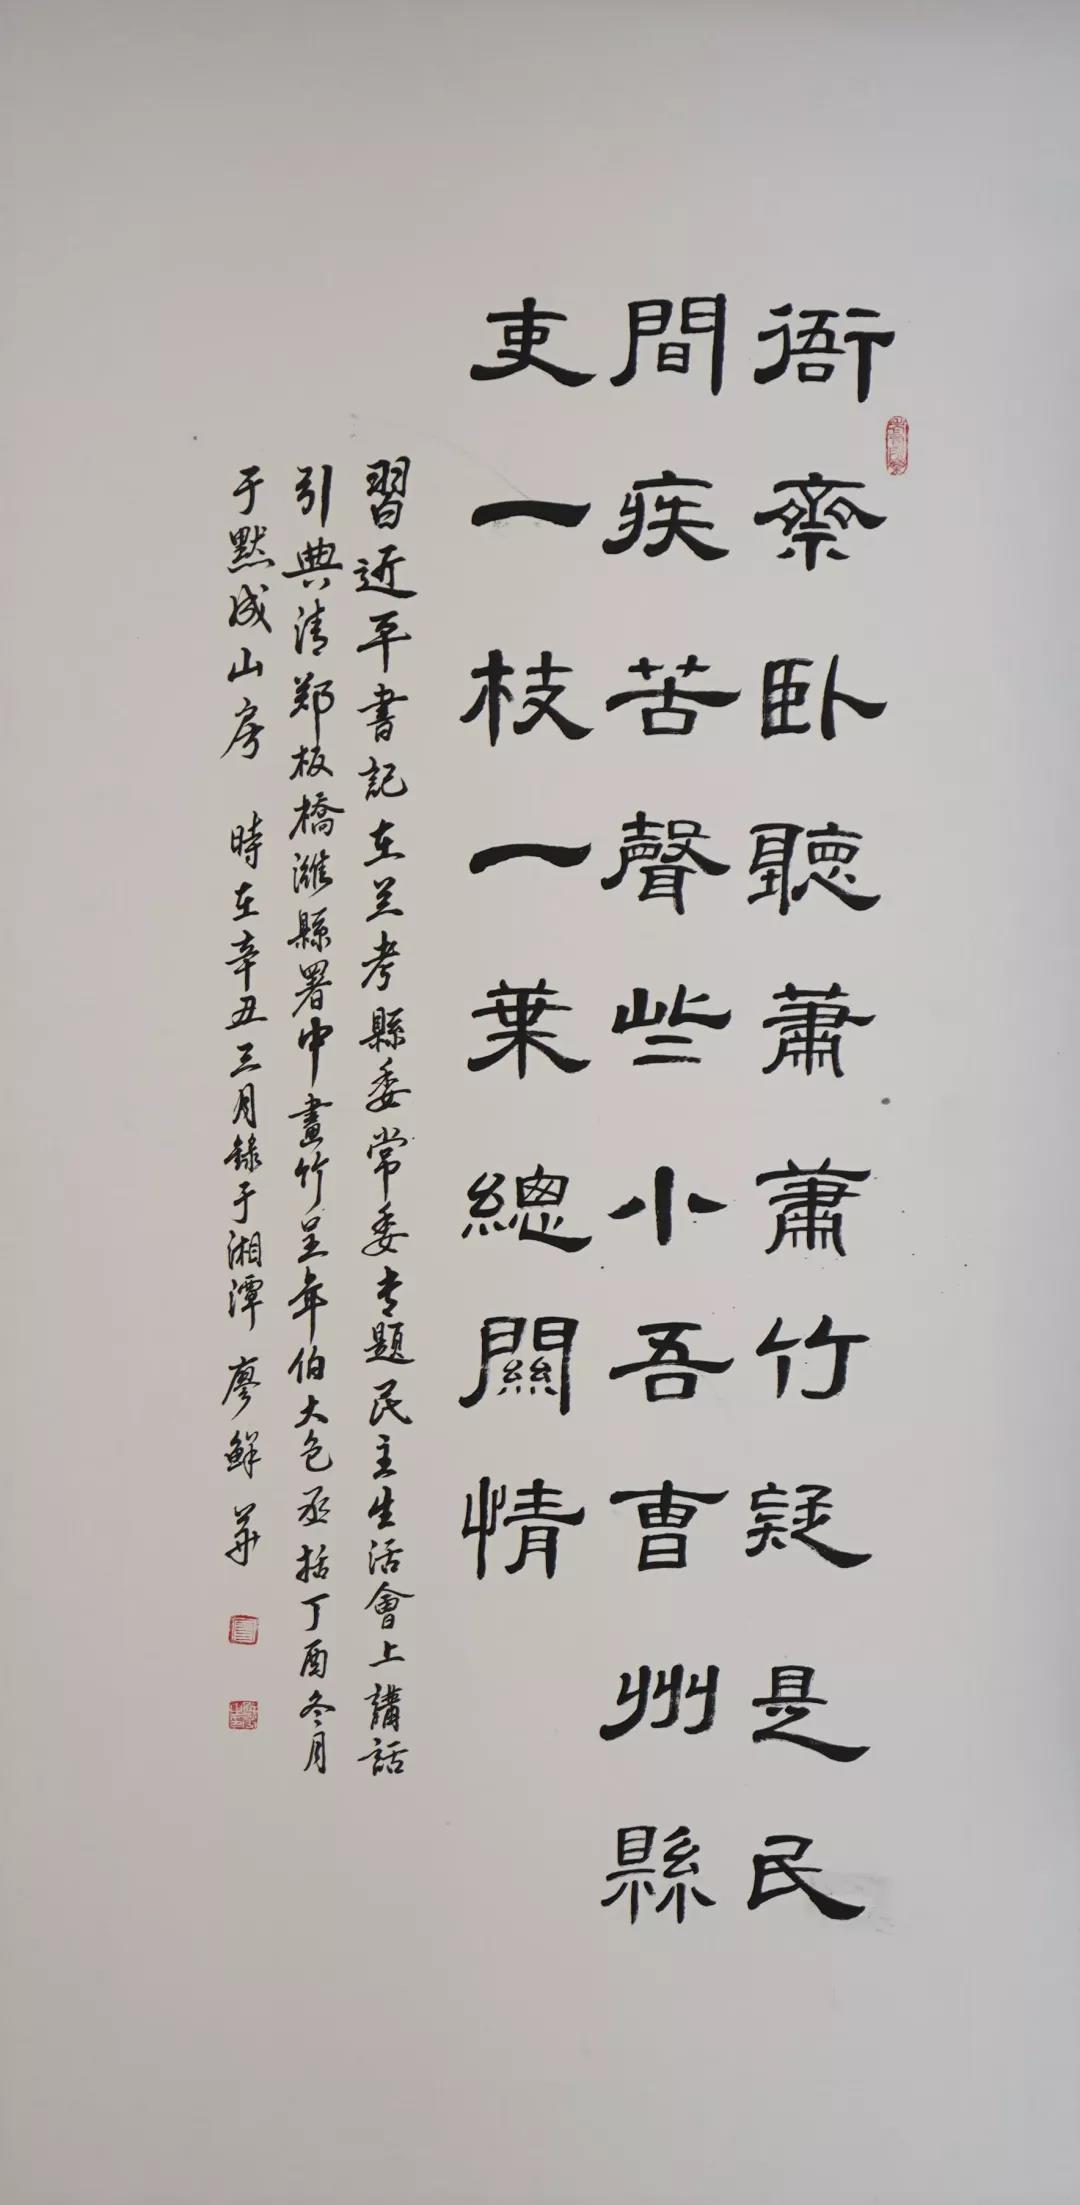 衙齋卧聽蕭蕭竹疑是民
間疾苦聲些小吾曹州縣
吏一枝一葉總關情
習近平書記在兰考縣委常委专題民主生活會上講話
引典清郑板橋濰縣署中畫竹呈年伯大包丞括丁酉冬月
于默成山房 時在辛丑三月錄于湘潭 廖鲜華